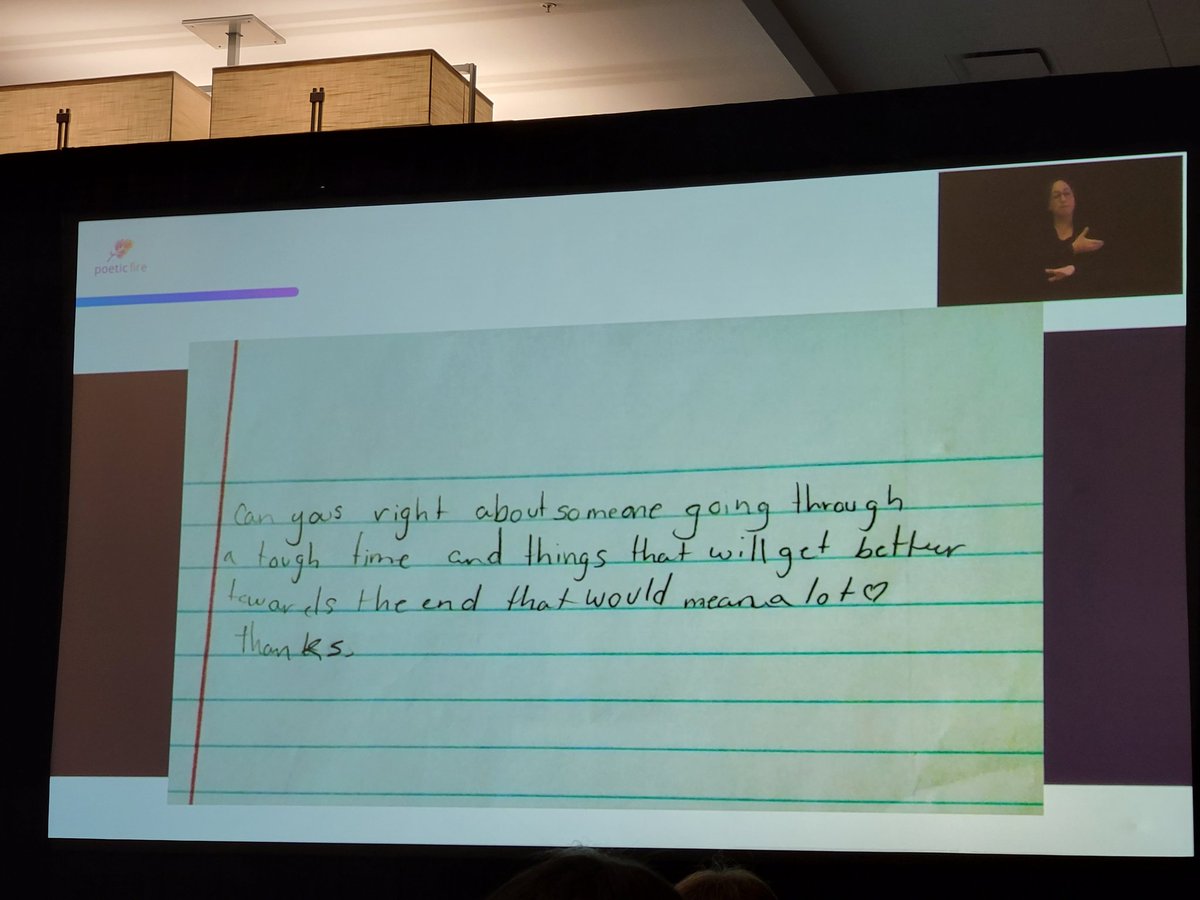 poetic fire
Can yous right about someone going through
a tough time and things that will get better
towards the end that would mean a lot ♡
thanks.